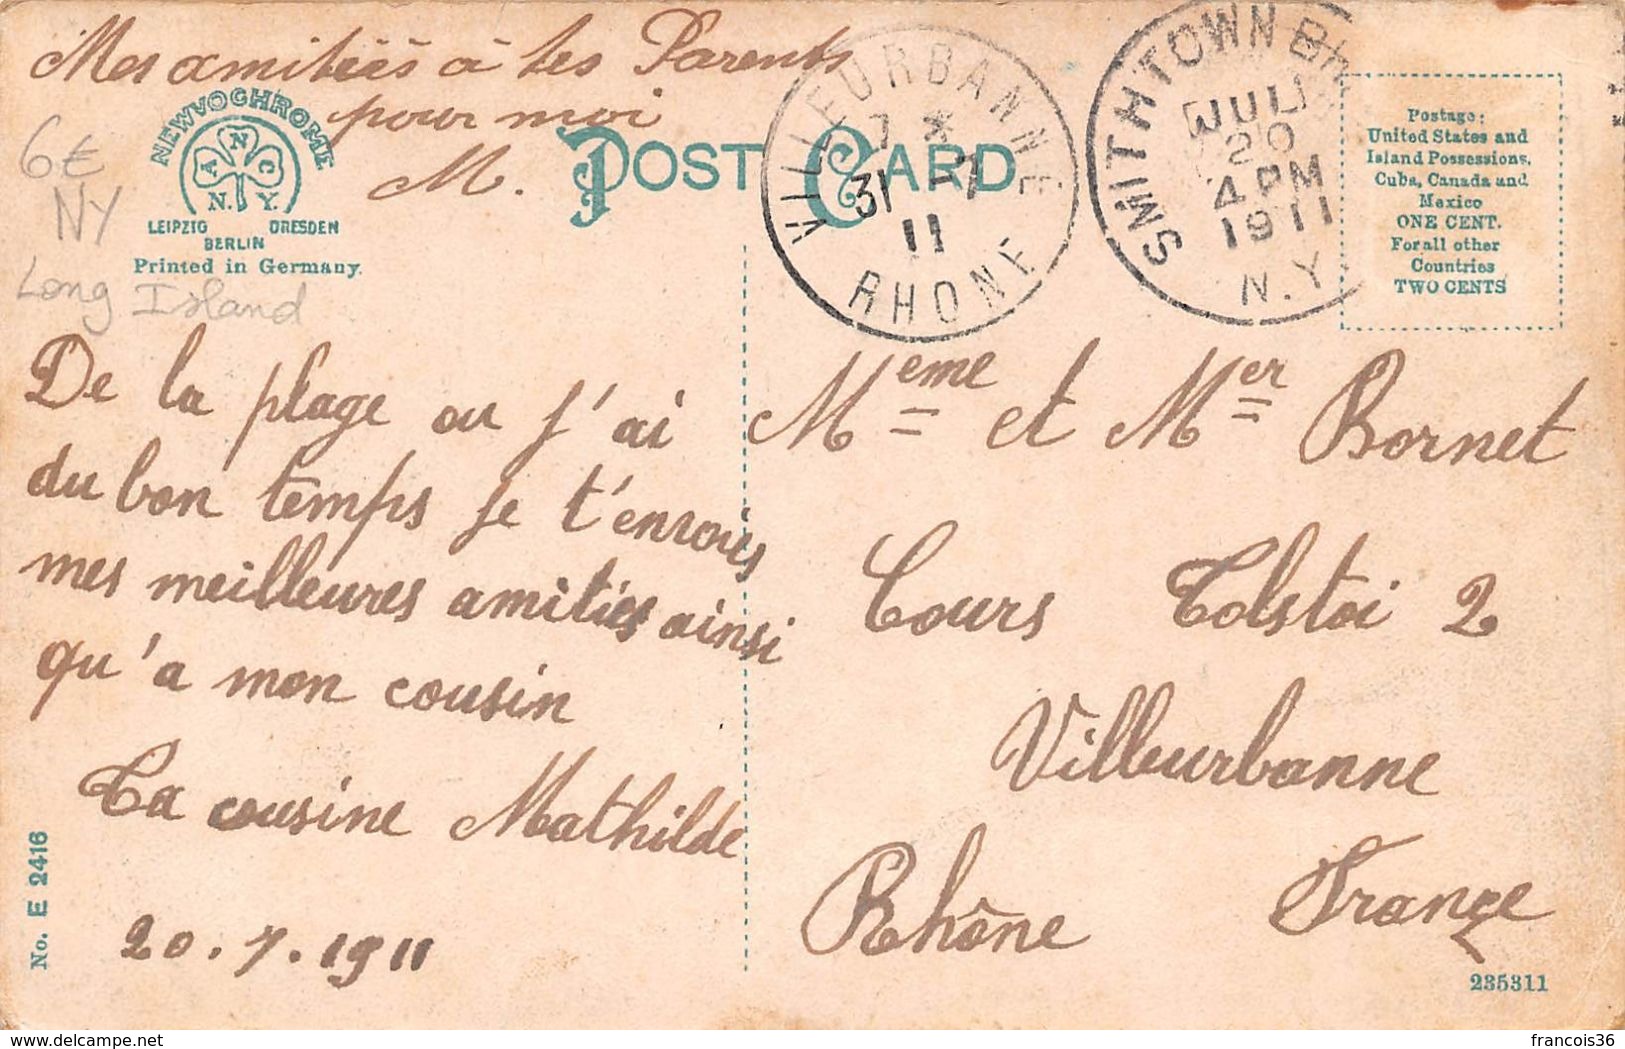 Mes amitiés à tes Parents
pour moi
M.
6€
NY
Long Island
NEWVOCHROME
A N C
N. Y.
LEIPZIG DRESDEN
BERLIN
Printed in Germany.
POST CARD
VILLEURBANNE
7 *
31 -7
11
RHONE
SMITHTOWN BR
JUL
20
4 PM
1911
N.Y.
Postage:
United States and
Island Possessions,
Cuba, Canada and
Mexico
ONE CENT.
For all other
Countries
TWO CENTS
De la plage ou j'ai
du bon temps je t'envois
mes meilleures amitiés ainsi
qu'a mon cousin
Ta cousine Mathilde
20.7.1911
Meme et Mer Bornet
Cours Tolstoi 2
Villeurbanne
Rhône France
No. E 2416
235311
www.delcampe.net
francois36